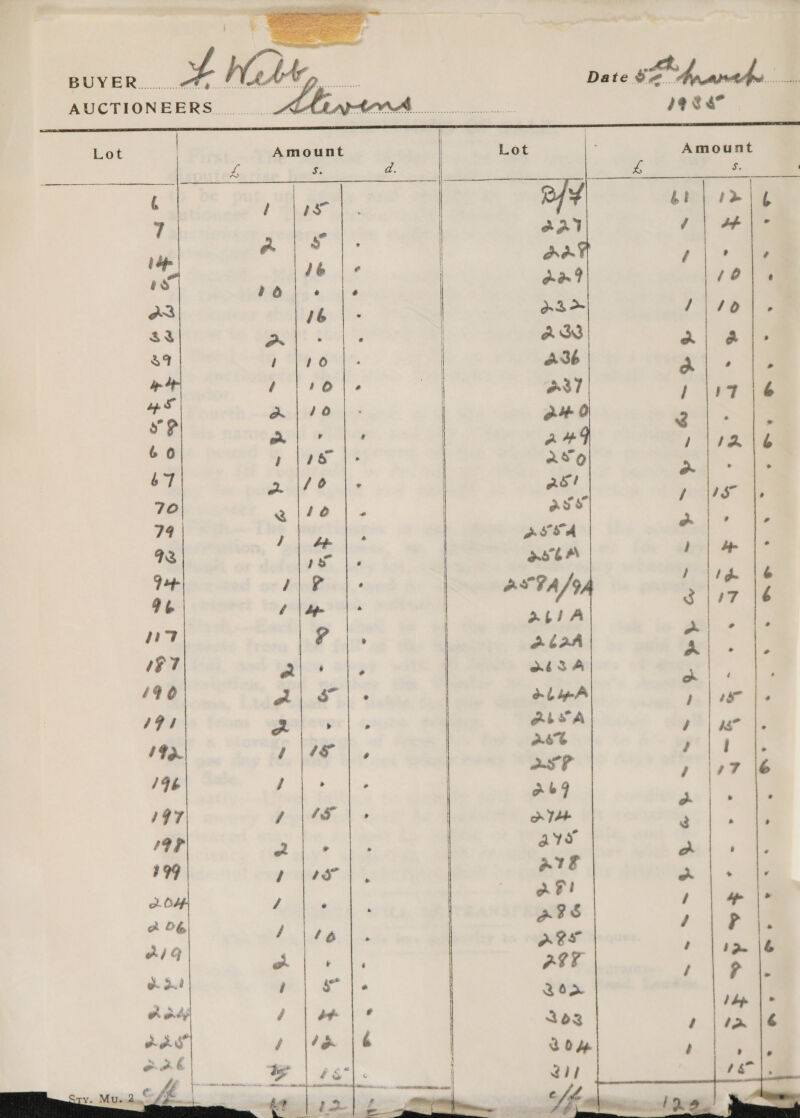 BUYER J. Webb Date 5th March
AUCTIONEERS Stevens 1935
Lot Amount
£ s. d.
6 1 15 .
7 2 5 .
14 16 .
15 10 . .
23 16 .
33 2 . .
39 1 10 .
44 1 10 .
45 2 10 .
58 2 . .
60 1 15 .
67 2 10 .
70 3 10 .
79 1 4 .
93 15 .
94 1 8 .
96 1 4 .
117 8 .
187 2 . .
190 2 5 .
191 2 . .
192 1 15 .
196 1 . .
197 1 15 .
198 2 . .
199 1 15 .
204 1 . .
206 1 10 .
219 2 . .
221 1 5 .
224 1 4 .
225 1 12 6
226 15 .
c/f 61 12 6
Sty. Mu. 2
Lot Amount
£ s.
B/F 61 12 6
227 1 4 .
228 1 . .
229 10 .
232 1 10 .
233 2 2 .
236 2 . .
237 1 17 6
240 3 . .
249 1 12 6
250 2 . .
251 1 15 .
255 2 . .
255A 1 4 .
256A 1 12 6
258A/9A 3 17 6
261A 2 . .
262A 2 . .
263A 2 . .
264A 1 15 .
265A 1 15 .
257 1 1 .
258 1 17 6
269 2 . .
274 3 . .
275 2 . .
278 2 . .
281 1 4 .
283 1 8 .
285 1 12 6
288 1 8 .
302 14 .
303 1 12 6
304 1 . .
311 15 .
c/f